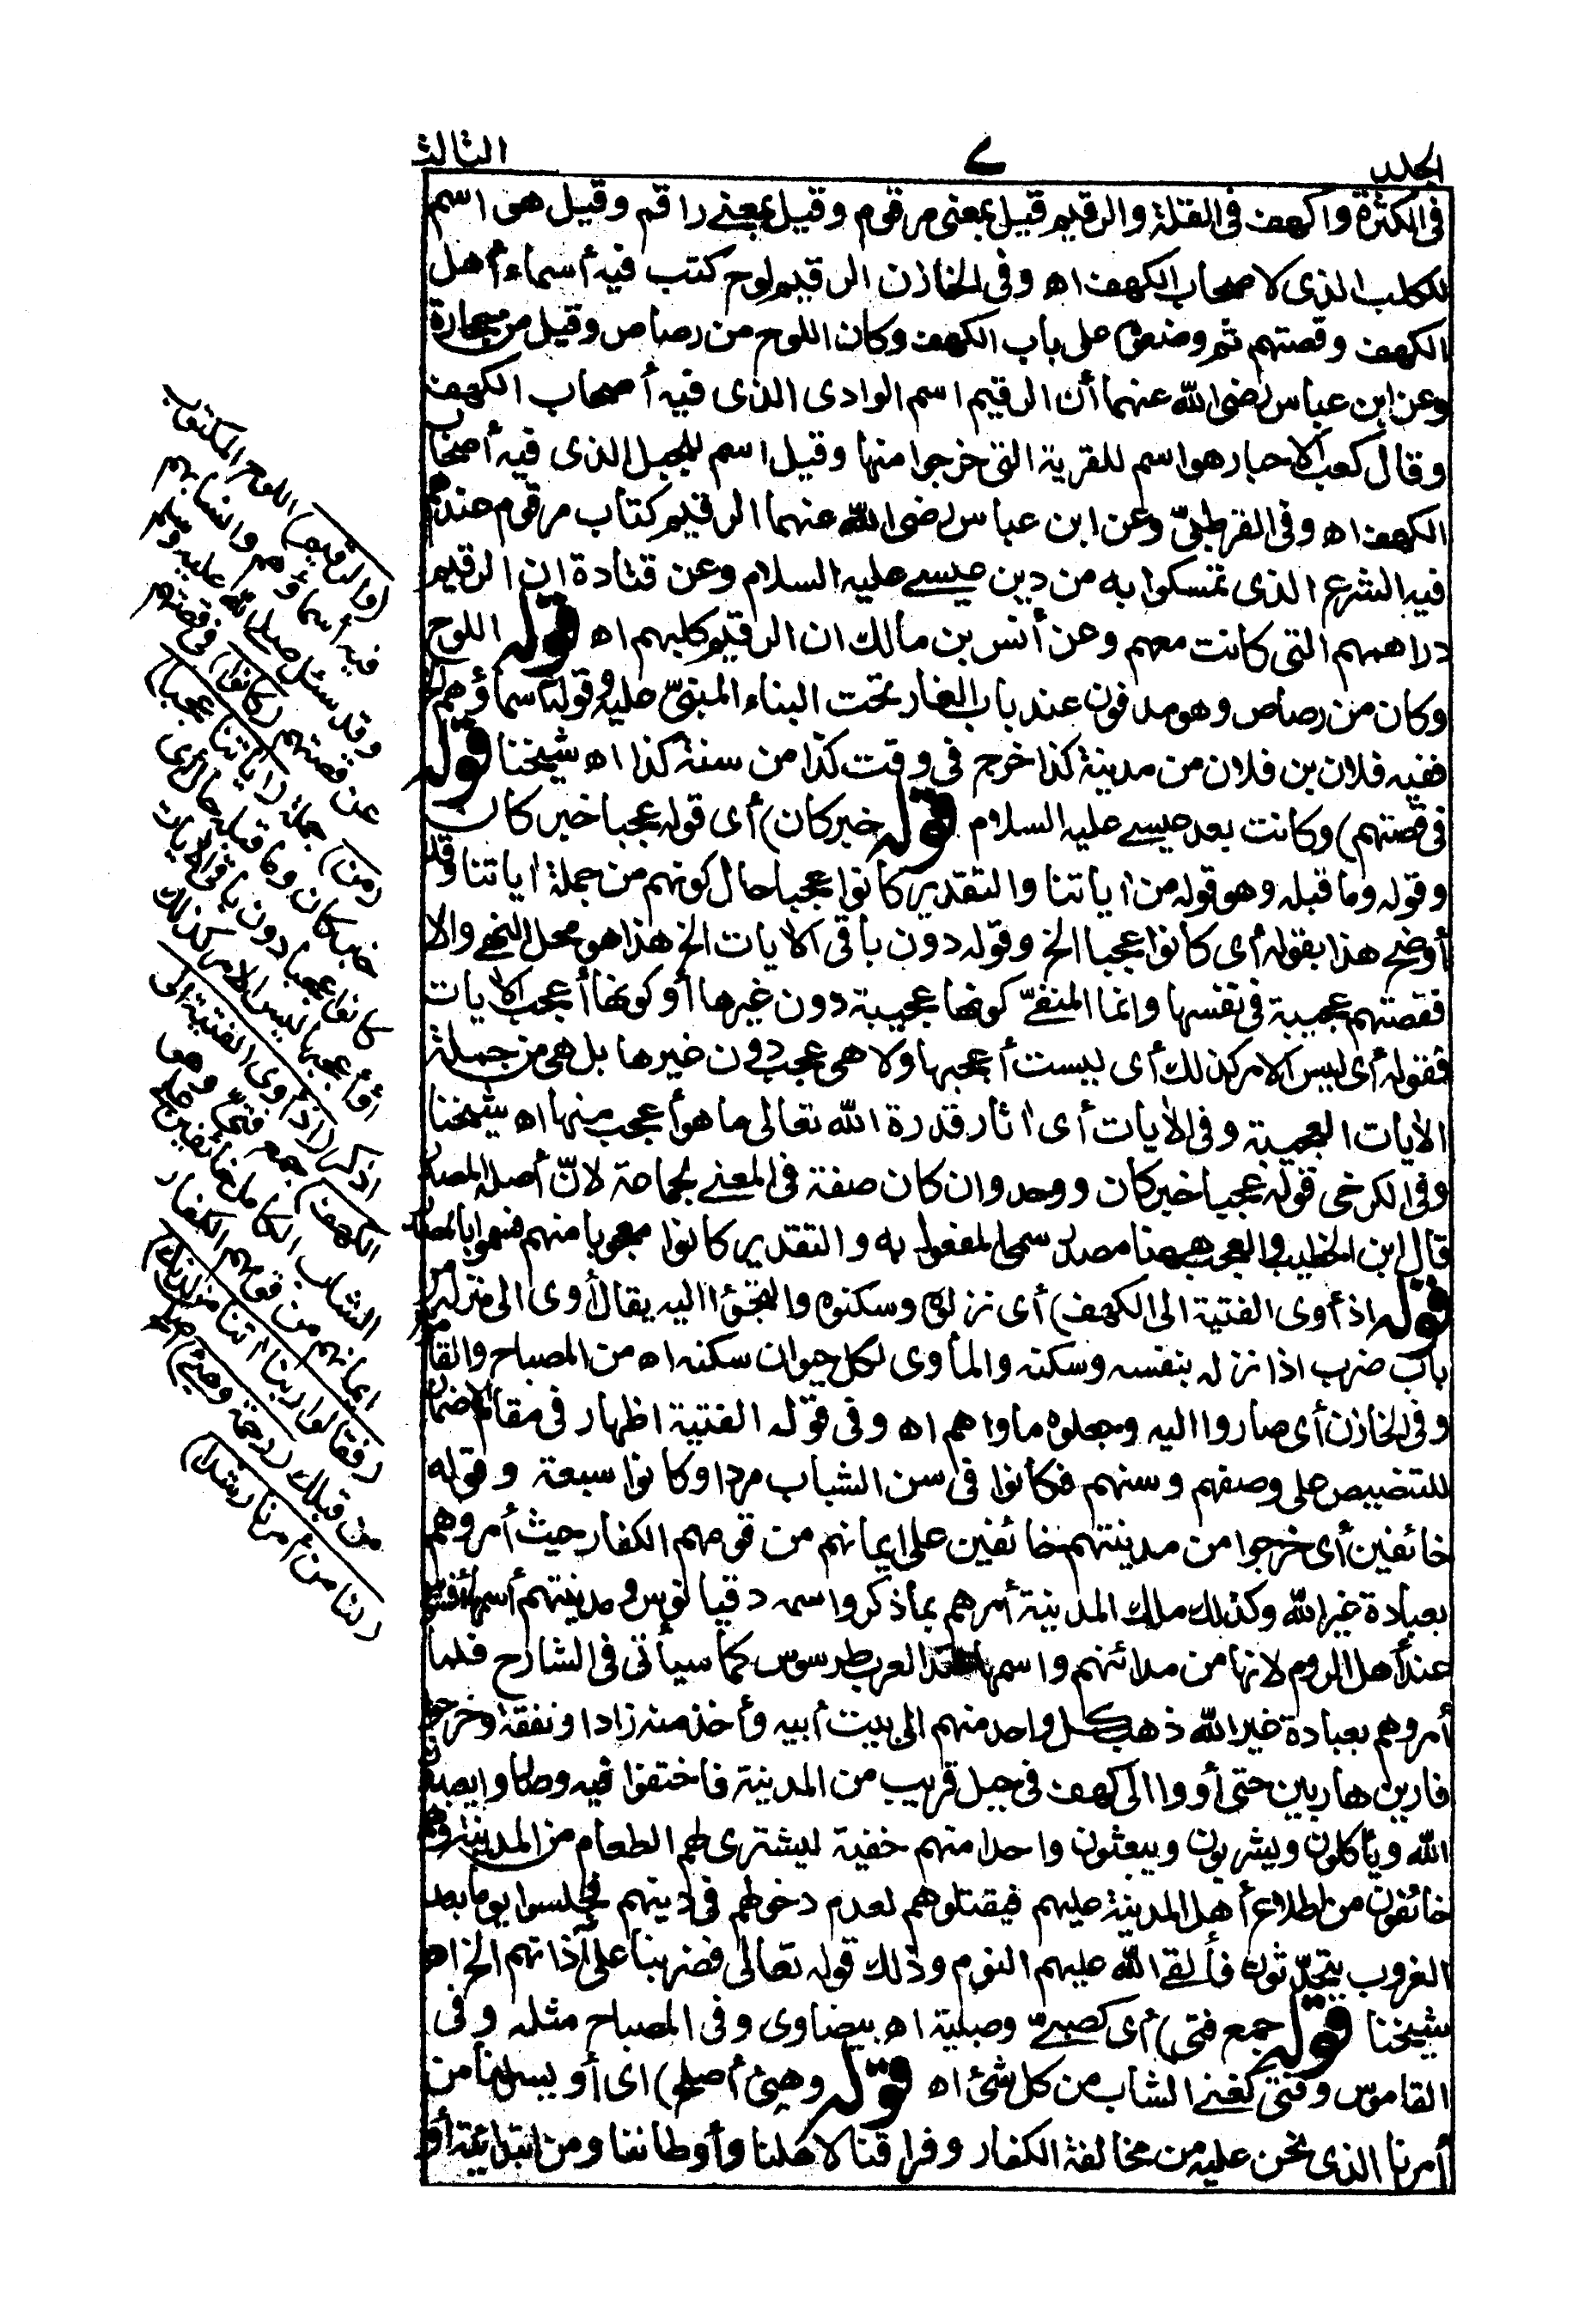 الجلد
٧
الثالث
فى الكثرة واكهف فى القلة والرقيم قيل بمعنى مرقوم وقيل بمعنى راقم وقيل هى اسم
لكلب الذى لاصحاب الكهف اه وفى الخازن الرقيم لوح كتب فيه أسماء أهل
الكهف وقصتهم ثم وضعوه على باب الكهف وكان اللوح من رصاص وقيل من حجارة
وعن ابن عباس رضى الله عنهما أن الرقيم اسم الوادى الذى فيه أصحاب الكهف
وقال كعب الاحبار هو اسم للقرية التى خرجوا منها وقيل اسم للجبل الذى فيه أصحاب
الكهف اه وفى القرطبىّ وعن ابن عباس رضى الله عنهما الرقيم كتاب مرقوم عندهم
فيه الشرع الذى تمسكوا به من دين عيسى عليه السلام وعن قتادة ان الرقيم
دراهمهم التى كانت معهم وعن أنس بن مالك ان الرقيم كلبهم اه قوله اللوح
وكان من رصاص وهو مدفون عند باب الغار تحت البناء المبنىّ عليه وقوله أسماؤهم الخ
ففيه فلان بن فلان من مدينة كذا خرج فى وقت كذا من سنة كذا اه شيخنا قوله
فى قصتهم) وكانت بعد عيسى عليه السلام قوله خبر كان) أى قوله عجبا خبر كان
وقوله وما قبله وهو قوله من اياتنا والتقدير كانوا عجبا حال كونهم من جملة اياتنا وقد
أوضح هذا بقوله أى كانوا عجبا الخ وقوله دون باقى الايات الخ هذا هو محل النفى والا
فقصتهم عجيبة فى نفسها وانما المنفىّ كونها عجيبة دون غيرها أو كونها أعجب الايات
فقوله أى ليس الامر كذلك أى ليست أعجبها ولا هى عجب دون غيرها بل هى من جملة
الايات العجيبة وفى الايات أى اثار قدرة الله تعالى ما هو أعجب منها اه شيخنا
وفى الكرخى قوله عجبا خبر كان ووحد وان كان صفة فى المعنى لجماعة لانّ أصله المصدر
قال ابن الخطيب والعجب ههنا مصدر سمى المفعول به والتقدير كانوا معجوبا منهم فسموا بالمصدر
قوله اذ أوى الفتية الى الكهف) أى نزلوه وسكنوه والتجؤا اليه يقال أوى الى منزله من
باب ضرب اذا نزله بنفسه وسكنه والمأوى لكل حيوان سكنه اه من المصباح والقاموس
وفى الخازن أى صاروا اليه وجعلوه ماواهم اه وفى قوله الفتية اظهار فى مقام الاضمار
للتنصيص على وصفهم وسنهم فكانوا فى سن الشباب مردا وكانوا سبعة وقوله
خائفين أى خرجوا من مدينتهم خائفين على ايمانهم من قومهم الكفار حيث أمروهم
بعبادة غير الله وكذلك ملك المدينة أمرهم بما ذكر واسمه دقيانوس ومدينتهم أسمها أفسوس
عند أهل الروم لانها من مدائنهم واسمها عند العرب طرسوس كما سيأتى فى الشارح فلما
أمروهم بعبادة غير الله ذهب كل واحد منهم الى بيت أبيه وأخذ منه زادا ونفقة وخرجوا
فارين هاربين حتى أووا الى كهف فى جبل قريب من المدينة فاختفوا فيه وصاروا يعبدون
الله ويأكلون ويشربون ويبعثون واحدا منهم خفية ليشترى لهم الطعام من المدينة وهم
خائفون من اطلاع أهل المدينة عليهم فيقتلوهم لعدم دخولهم فى دينهم فجلسوا يوما بعد
الغروب يتحدّثون فألقى الله عليهم النوم وذلك قوله تعالى فضربنا على آذانهم الخ اه
شيخنا قوله جمع فتى) أى كصبىّ وصبية اه بيضاوى وفى المصباح مثله وفى
القاموس وفتى كغنى الشاب من كل شئ اه قوله وهيئ أصلح) اى أو يسر لنا من
أمرنا الذى نحن عليه من مخالفة الكفار وفراقنا لاهلنا وأوطاننا ومن ابتدائية أو
(والرقيم) اللوح المكتوب
فيه أسماؤهم وأنسابهم
وقد سئل صلى الله عليه وسلم
عن قصتهم (كانوا) فى قصتهم
(من) جملة (اياتنا عجبا)
خبر كان وما قبله حال أى
كانوا عجبا دون باقى الايات
أو أعجبها ليس الامر كذلك
اذكر (اذ أوى الفتية الى
الكهف) جمع فتى وهو
الشاب الكامل خائفين على
ايمانهم من قومهم الكفار
(فقالوا ربنا اتنا من لدنك)
من قبلك (رحمة وهيئ) أصلح
(لنا من أمرنا رشدا)